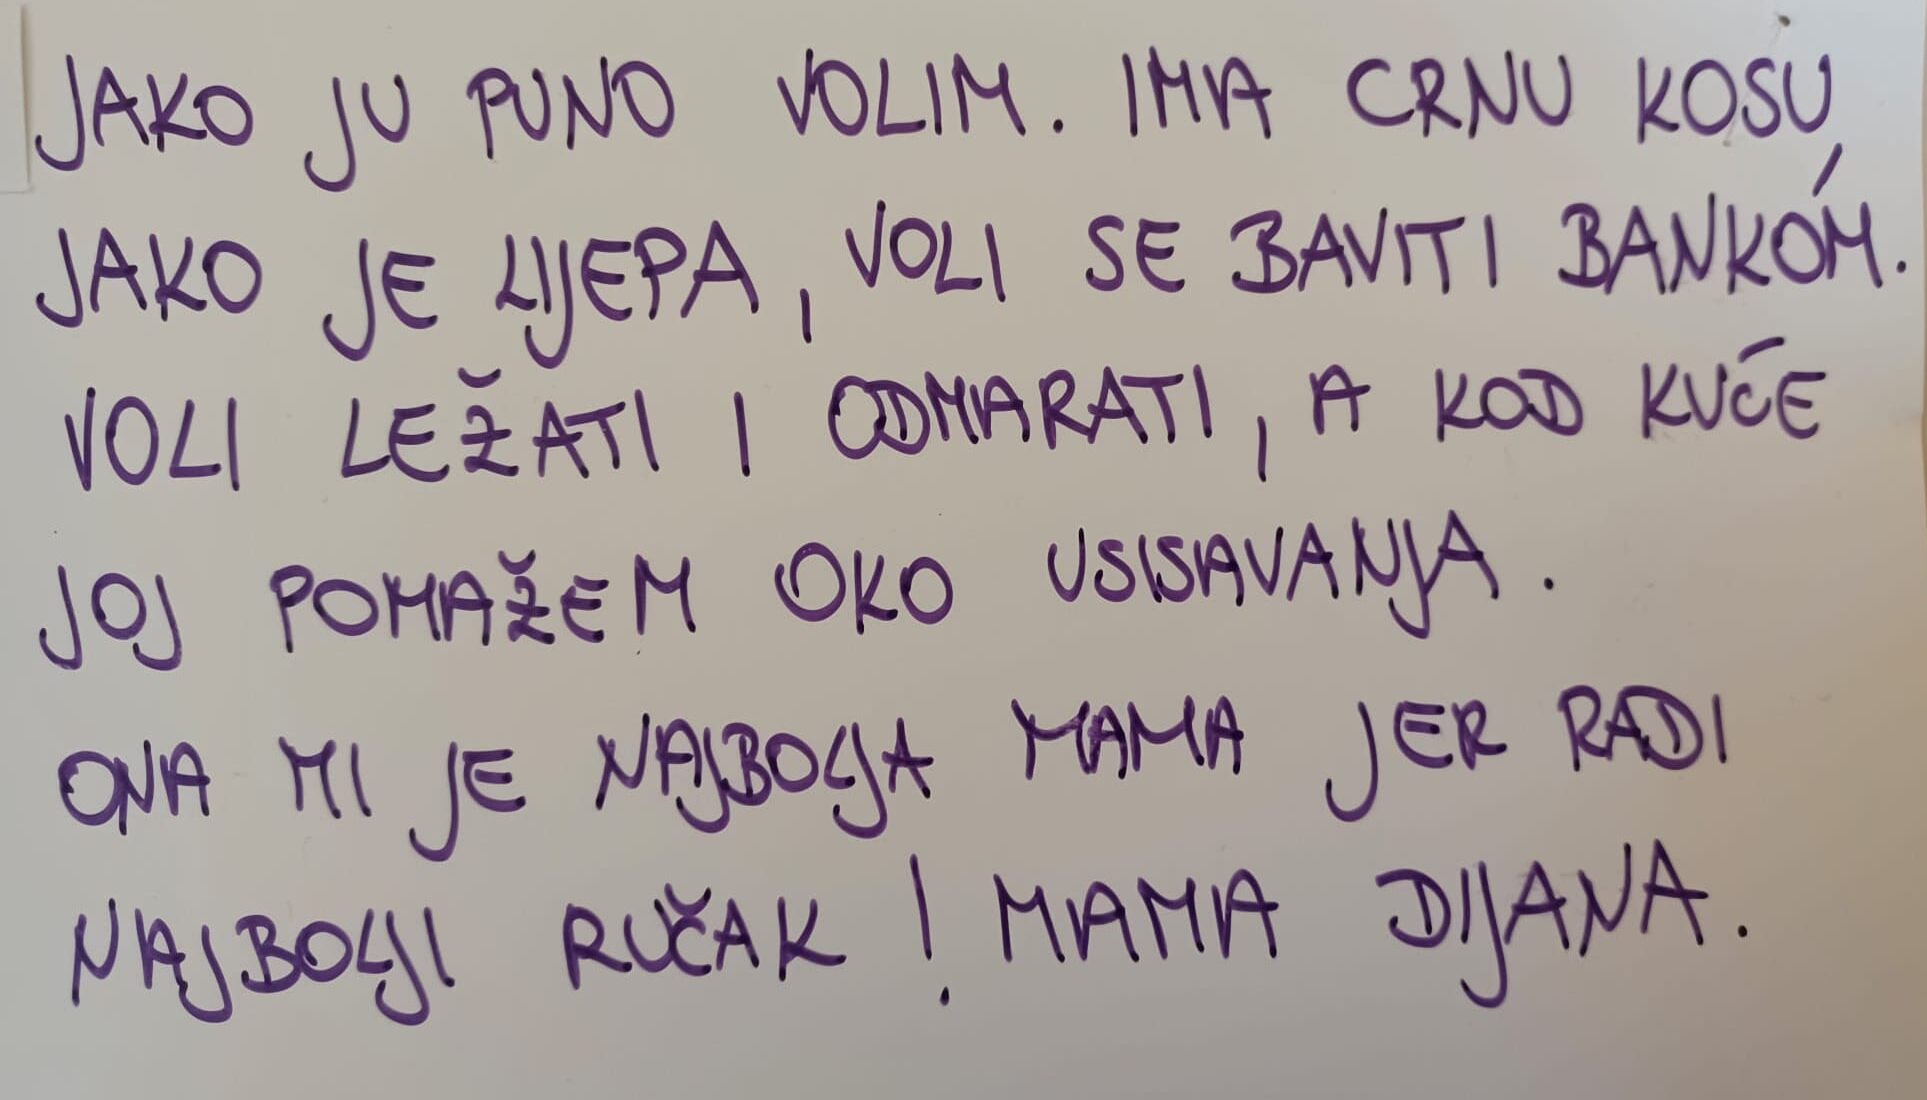 JAKO JU PUNO VOLIM. IMA CRNU KOSU,
JAKO JE LIJEPA, VOLI SE BAVITI BANKOM.
VOLI LEŽATI I ODMARATI, A KOD KUĆE
JOJ POMAŽEM OKO USISAVANJA.
ONA MI JE NAJBOLJA MAMA JER RADI
NAJBOLJI RUČAK! MAMA DIJANA.